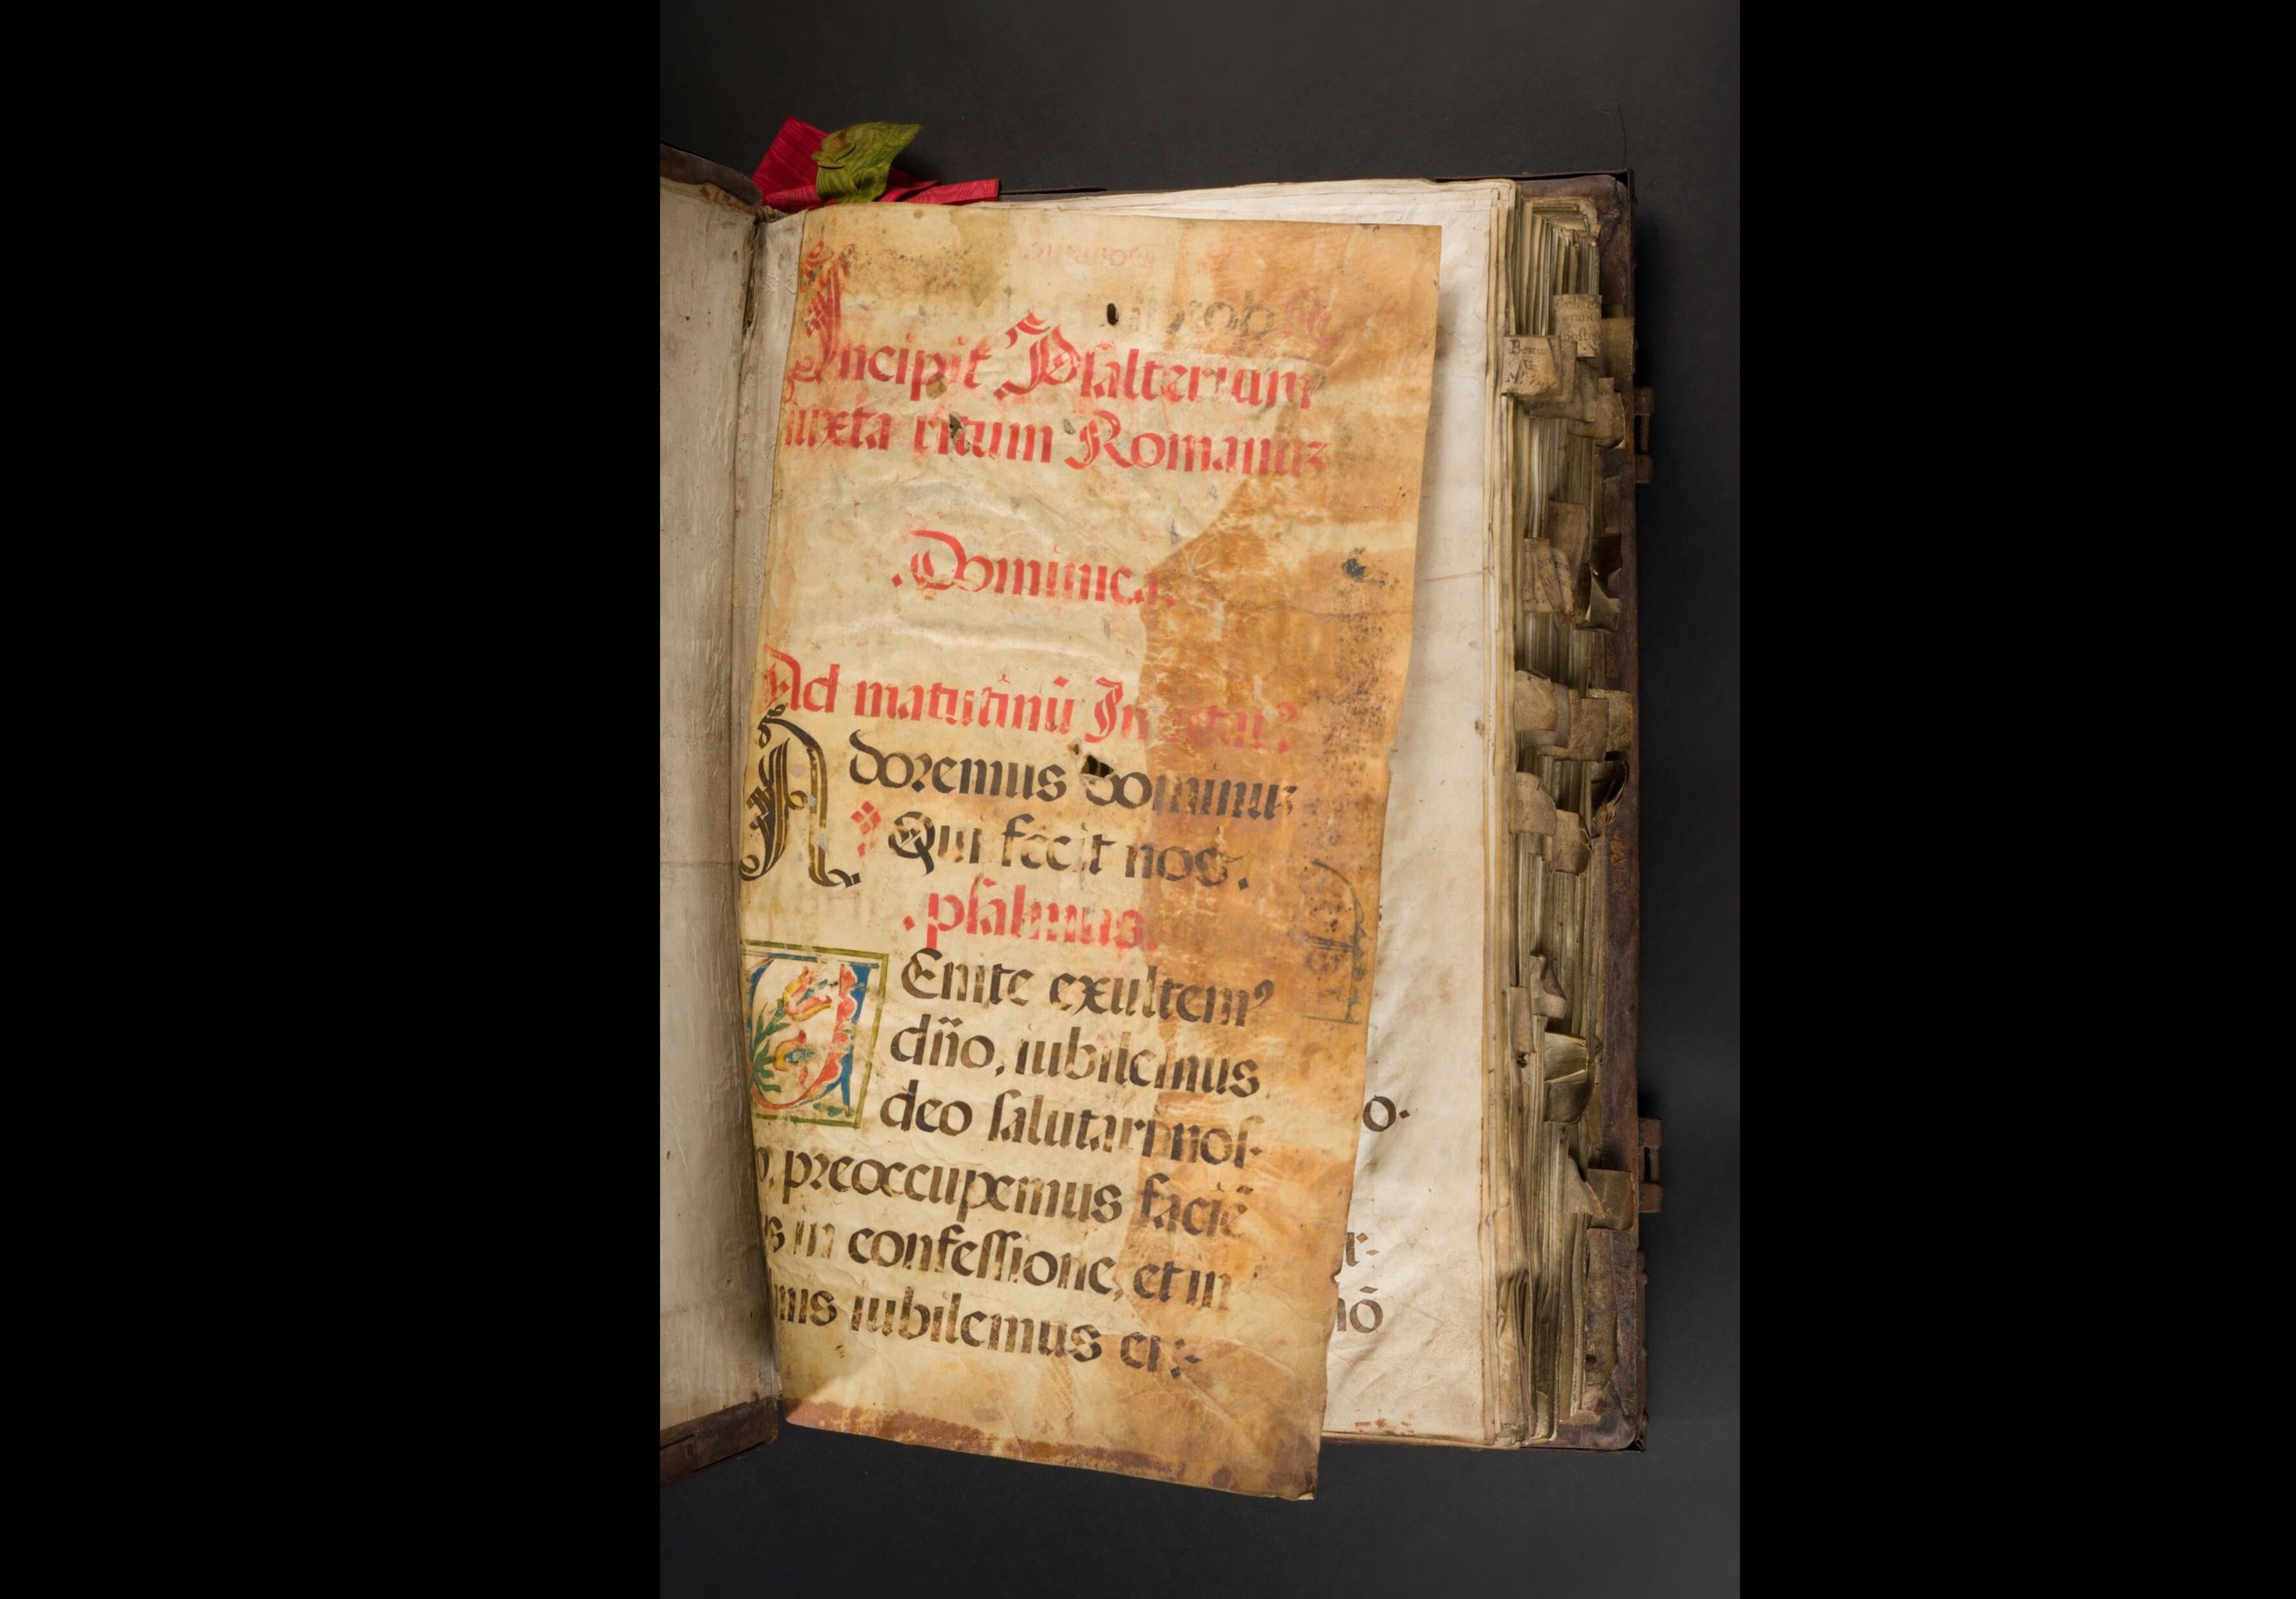 Incipit Psalterium
iuxta ritum Romanuz
.Dominica.
Ad matutinū
Adoremus dominuz
Qui fecit nos.
.psalmus.
UEnite exultemꝰ
dn̄o, iubilemus
deo salutari nos-
o, preoccupemus faciē
s in confessione, et in
mis iubilemus ei:-
o.
r:-
nō
Beatus